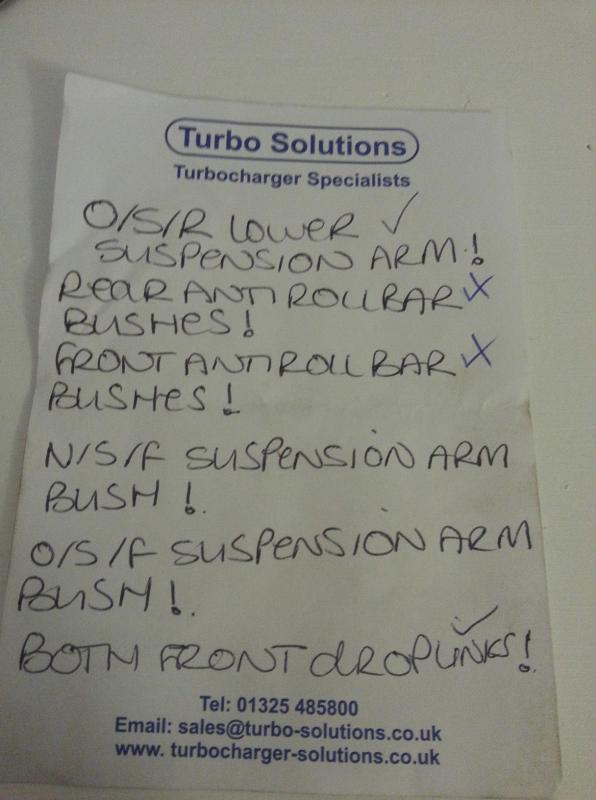 Turbo Solutions
Turbocharger Specialists
O/S/R LOWER ✓
SUSPENSION ARM!
REAR ANTI ROLL BAR X
BUSHES!
FRONT ANTI ROLL BAR X
BUSHES!
N/S/F SUSPENSION ARM
BUSH!
O/S/F SUSPENSION ARM
BUSH!
BOTH FRONT dROPLINKS! ✓
Tel: 01325 485800
Email: sales@turbo-solutions.co.uk
www. turbocharger-solutions.co.uk